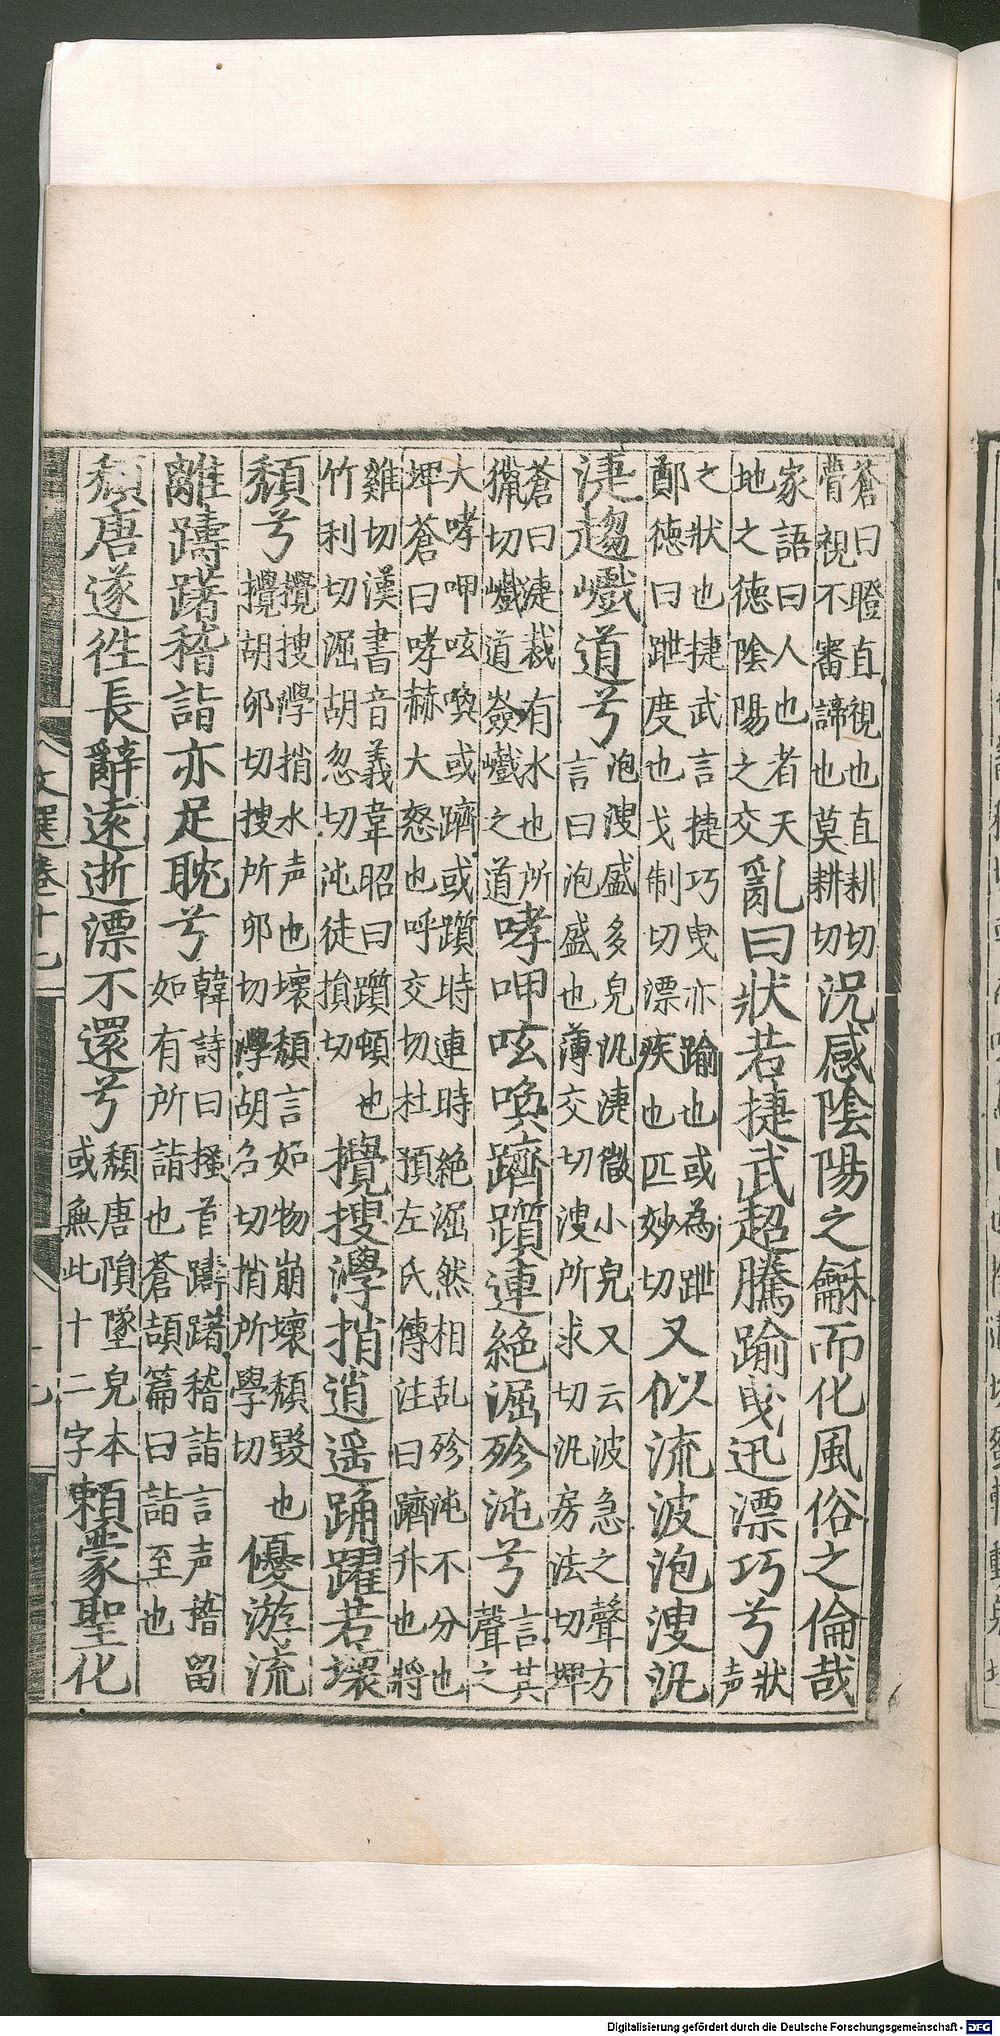 蒼曰瞪直視也直耕切
瞢視不審諦也莫耕切
況感陰陽之龢而化風俗之倫哉
家語曰人也者天
地之德陰陽之交
亂曰狀若捷武超騰踰曳迅漂巧兮
狀
声
之狀也捷武言捷巧曳亦踰也或為跇
鄭德曰跇度也戈制切漂疾也匹妙切
又似流波泡溲汎
淁趨巇道兮
泡溲盛多皃汎淁微小皃又云波急之聲方
言曰泡盛也薄交切溲所求切汎房法切埤
蒼曰淁裁有水也所
獵切巇道嶮巇之道
哮呷呟喚躋躓連絕淈殄沌兮
言其
聲之
大哮呷呟喚或躋或躓時連時絕淈然相乱殄沌不分也
埤蒼曰哮赫大怒也呼交切杜預左氏傳注曰躋升也將
雞切漢書音義韋昭曰躓頓也
竹利切淈胡忽切沌徒損切
攪搜㶅捎逍遥踊躍若壞
頹兮
攪搜㶅捎水声也壞頹言如物崩壞頹毀也
攪胡卯切搜所卯切㶅胡名切捎所學切
優游流
離躊躇稽詣亦足耽兮
韓詩曰搔首躊躇稽詣言声稽留
如有所詣也蒼頡篇曰詣至也
頹唐遂往長辭遠逝漂不還兮
頹唐隕墜皃本
或無此十二字
賴蒙聖化
文選卷十七
Digitalisierung gefördert durch die Deutsche Forschungsgemeinschaft - DFG